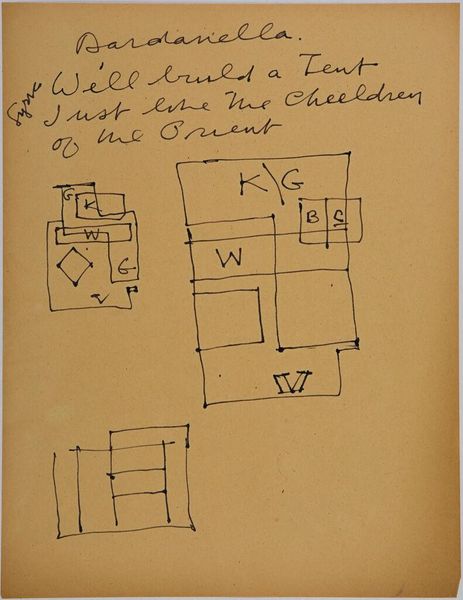 Dardanella.
We'll build a Tent
Just like The Cheeldren
of the Orient
K G
G K
B
W
W
G
V
V